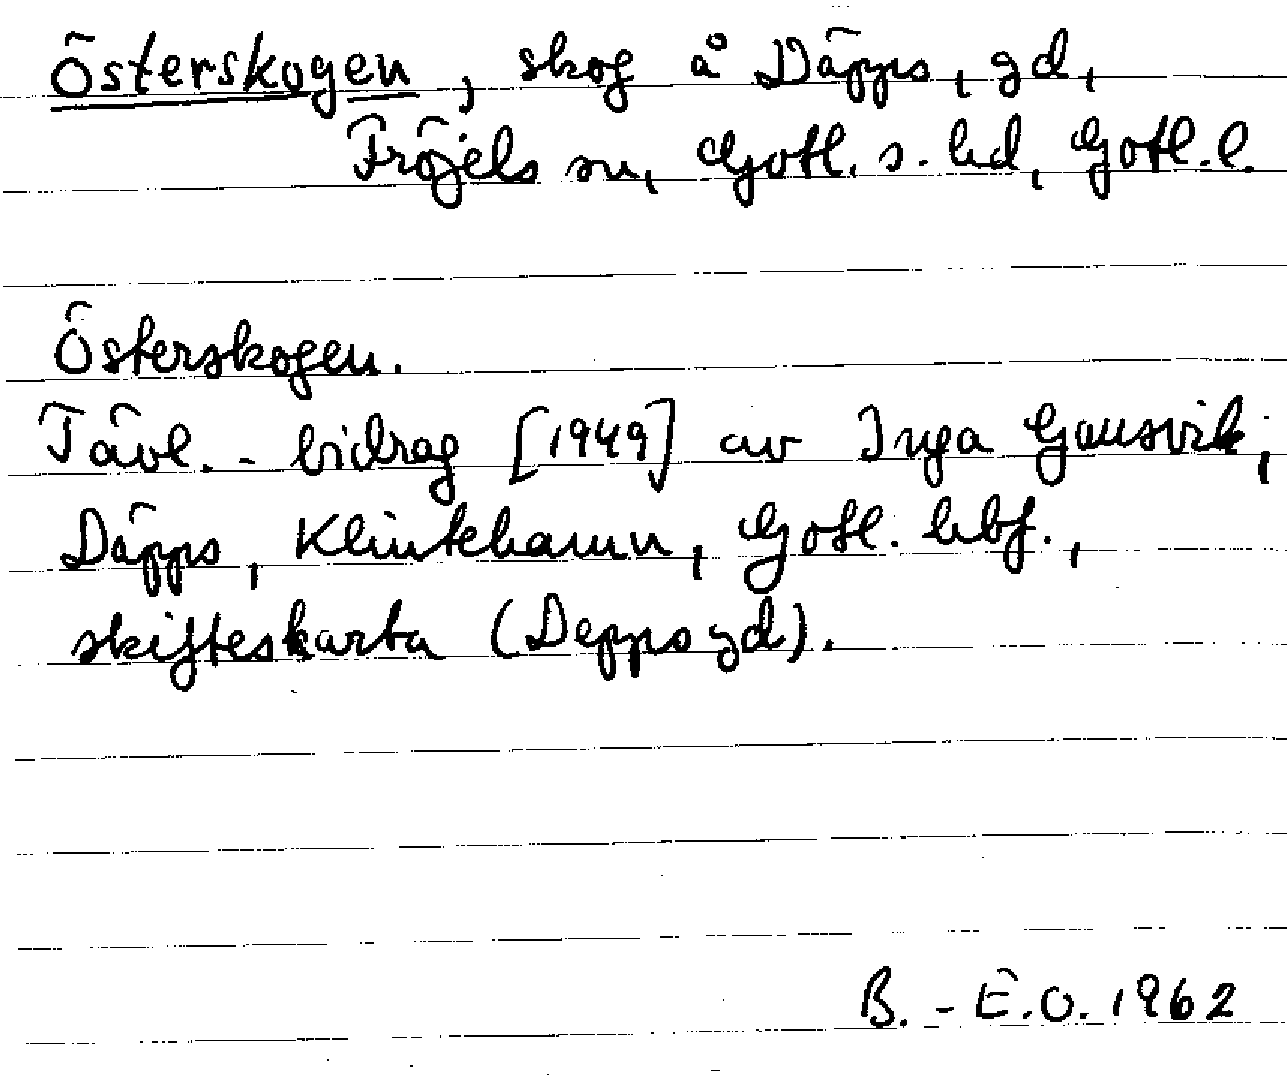 Österskogen, skog å Däpps, gd,
Fröjels sn, Gotl. s. hd, Gotl. l.
Österskogen.
Tävl.-bidrag [1949] av Inga Gausvik,
Däpps, Klintehamn, Gotl. hbf.,
skifteskarta (Depps gd).
B.-E.O. 1962